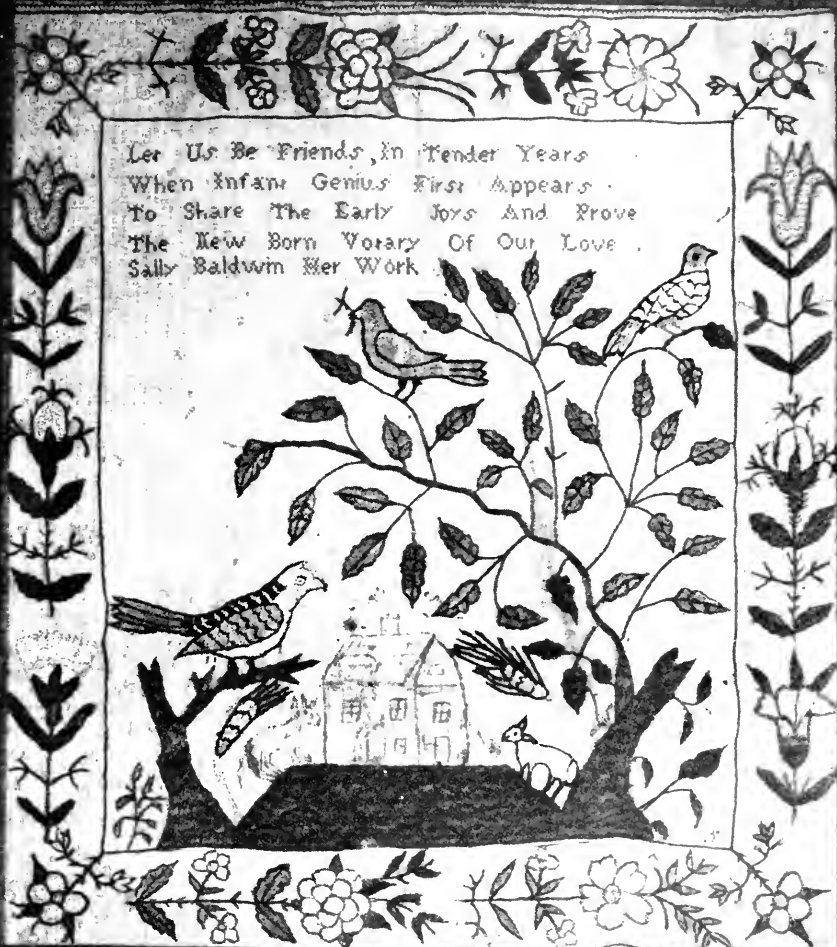 Let Us Be Friends, In Tender Years
When Infant Genius First Appears
To Share The Early Joys And Prove
The New Born Votary Of Our Love.
Sally Baldwin Her Work